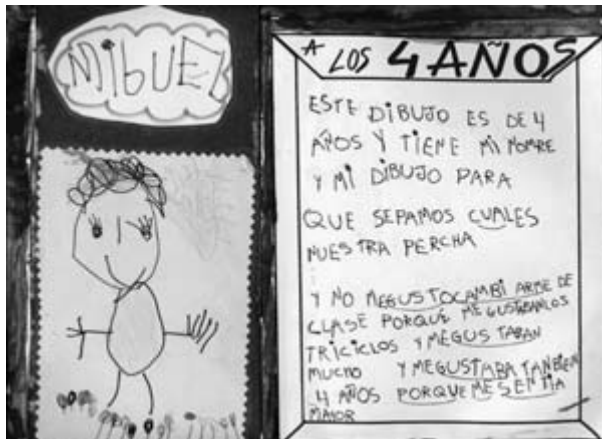 MIGUEL
A LOS 4 AÑOS
ESTE DIBUJO ES DE 4
AÑOS Y TIENE MI NOMRE
Y MI DIBUJO PARA
QUE SEPAMOS CUALES
NUESTRA PERCHA
Y NO MEGUSTOCAMBI ARME DE
CLASE PORQUE ME GUSTABANLOS
TRICICLOS Y MEGUS TABAN
MUCHO Y MEGUSTABA TANBIEN
4 AÑOS PORQUE ME SENTIA
MAYOR